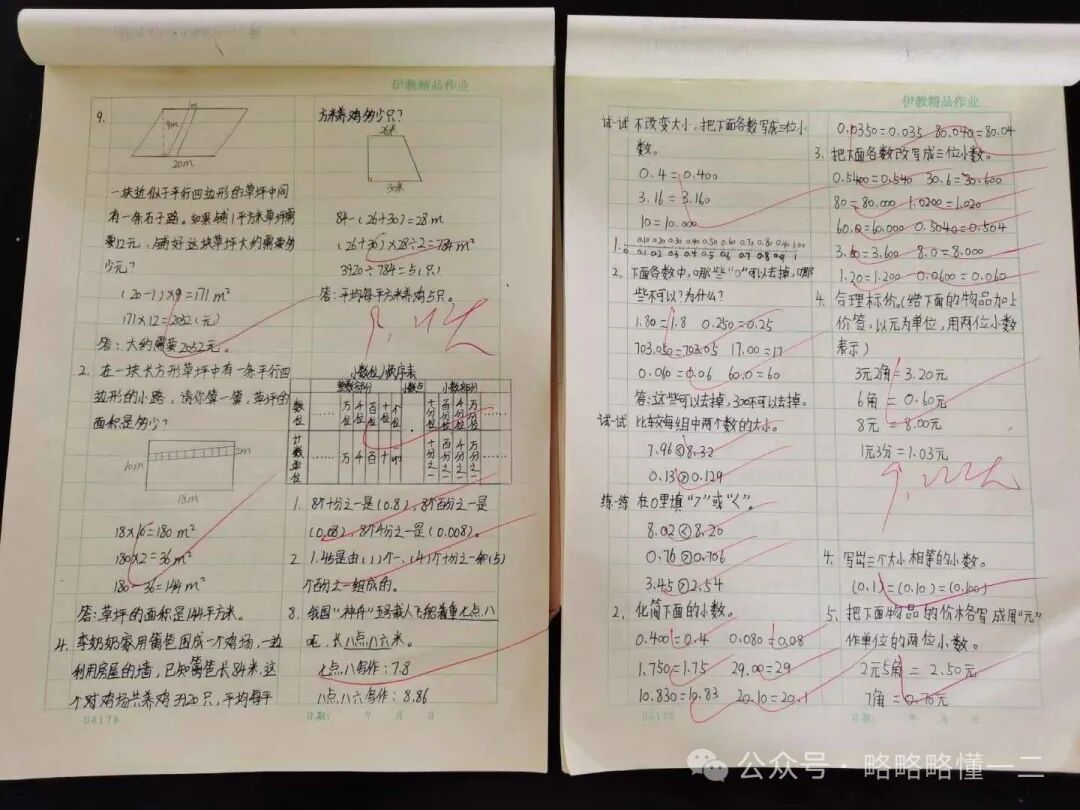 伊教精品作业
9.
1m
9m
20m
一块近似于平行四边形的草坪中间
有一条石子路。如果铺1平方米草坪需
要12元，铺好这块草坪大约需要多
少元？
(20-1)×9=171m²
171×12=2052(元)
答：大约需要2052元。
2. 在一块长方形草坪中有一条平行四
边形的小路，请你算一算，草坪的
面积是多少？
10m
2m
18m
18×10=180 m²
180×2=36 m²
180-36=144 m²
答：草坪的面积是144平方米。
4. 李奶奶家用篱笆围成一个鸡场，一边
利用房屋的墙，已知篱笆长84米，这
个对鸡场共养鸡3920只，平均每平
04178
方米养鸡多少只？
26米
30米
84-(26+30)=28m
(26+30)×28÷2=784m²
3920÷784=5(只)
答：平均每平方米养鸡5只。
小数位顺序表
整数部分 小数点 小数部分
数位 …… 万位 千位 百位 十位 个位 . 十分位 百分位 千分位 万分位 ……
计数单位 …… 万 千 百 十 个 十分之一 百分之一 千分之一 万分之一 ……
1. 8个十分之一是(0.8)，8个百分之一是
(0.08)，8个千分之一是(0.008)。
2. 1.45是由(1)个一、(4)个十分之一和(5)
个百分之一组成的。
8. 我国“神舟”五号载人飞船着重七点八
吨，长八点八六米。
七点八写作：7.8
八点八六写作：8.86
日期： 年 月 日
伊教精品作业
试一试 不改变大小，把下面各数写成三位小
数。
0.4=0.400
3.16=3.160
10=10.000
1.
0.10 0.20 0.30 0.40 0.50 0.60 0.70 0.80 0.90 1.00
0 0.1 0.2 0.3 0.4 0.5 0.6 0.7 0.8 0.9 1
2. 下面各数中，哪些“0”可以去掉，哪
些不可以？为什么？
1.80=1.8 0.250=0.25
703.050=703.05 17.00=17
0.060=0.06 60.0=60
答：这些可以去掉，不可以去掉。
试一试 比较每组中两个数的大小。
7.96<8.32
0.13>0.129
练一练 在○里填“>”或“<”。
8.02<8.20
0.76>0.706
3.45>2.54
2. 化简下面的小数。
0.400=0.4 0.080=0.08
1.750=1.75 29.00=29
10.830=10.83 20.10=20.1
04178
0.0350=0.035 80.040=80.04
3. 把下面各数改写成三位小数。
0.5400=0.540 30.6=30.600
80=80.000 1.0200=1.020
60.0=60.000 0.5040=0.504
3.60=3.600 8.0=8.000
1.20=1.200 0.0600=0.060
4. 合理标价。(给下面的物品加上
价签，以元为单位，用两位小数
表示)
3元2角=3.20元
6角=0.60元
8元=8.00元
1元3分=1.03元
4. 写出三个大小相等的小数。
(0.1)=(0.10)=(0.100)
5. 把下面物品的价格各写成用“元”
作单位的两位小数。
2元5角=2.50元
7角=0.70元
日期： 年 月 日
公众号·略略略懂一二